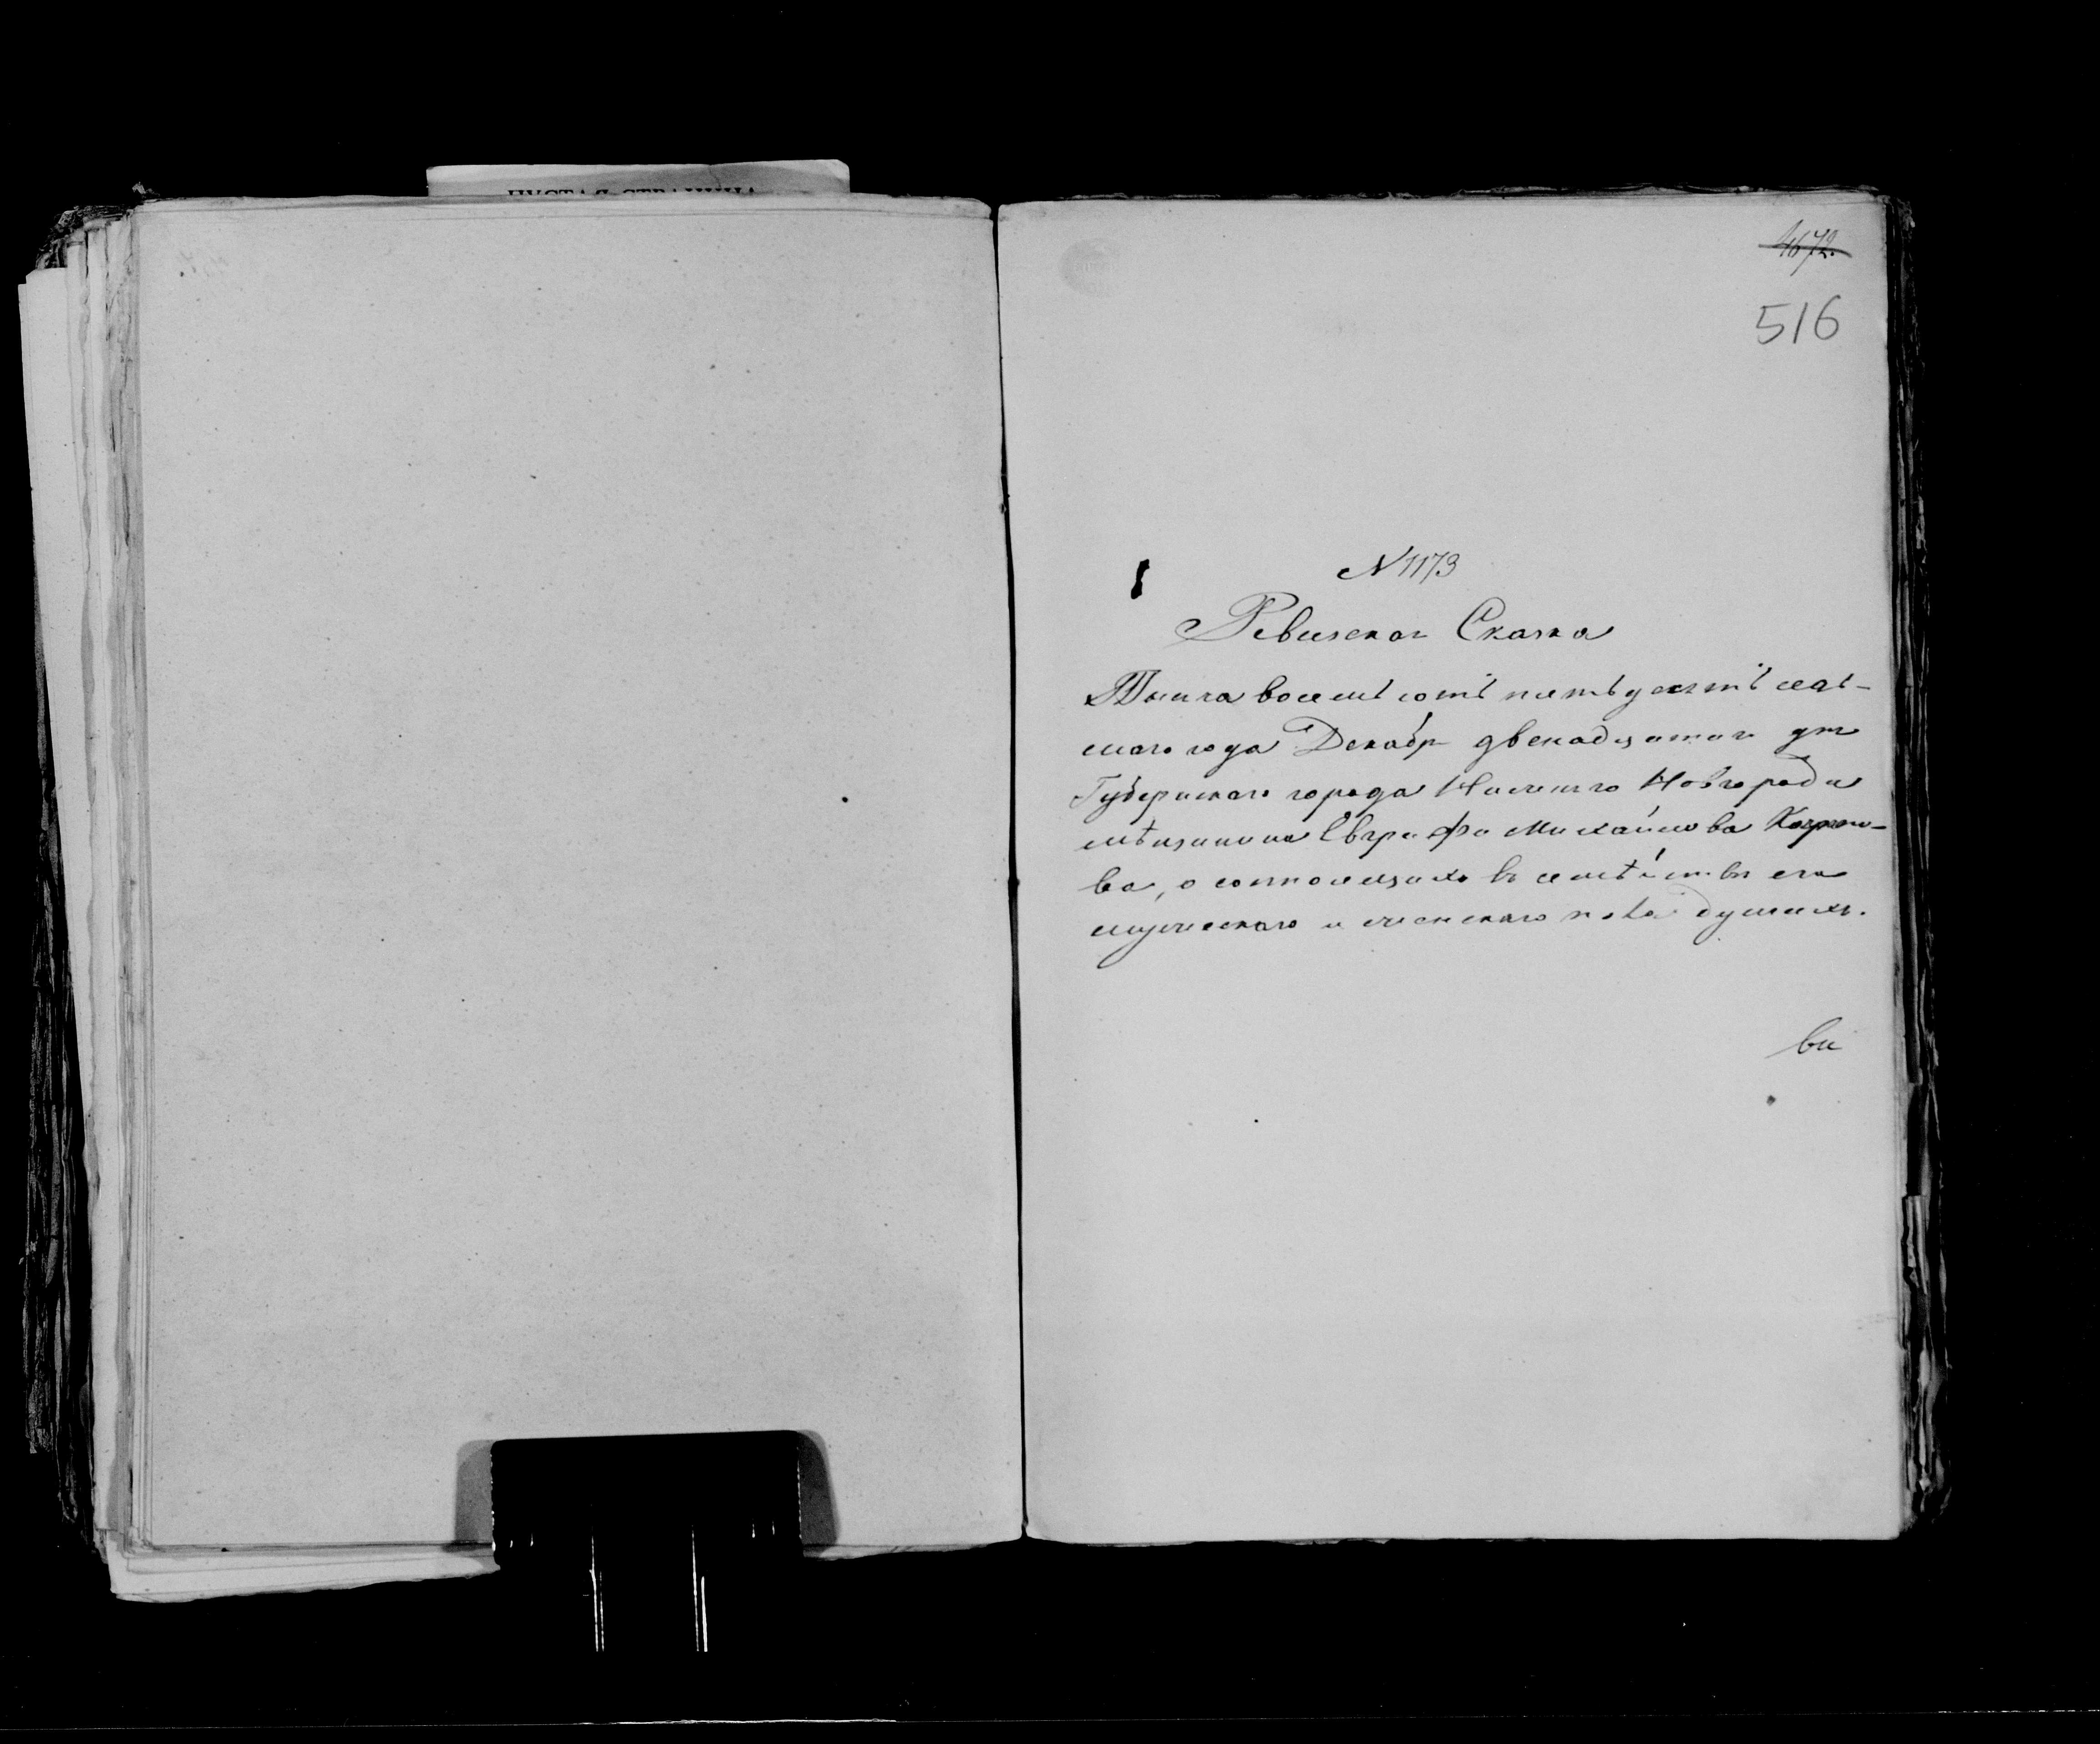 ПУСТАЯ СТРАНИЦА
4672.
516
N 1173
Ревизская Сказка
Тысяча восемь сотъ пятьдесятъ седь-
маго года Декабр двенадцатаго дня
Губернскаго города Нижняго Новгорода
мѣщанина Евграфа Михайлова
ва, о состоящихъ въ семѣйствѣ его
мужескаго и женскаго пола душахъ.